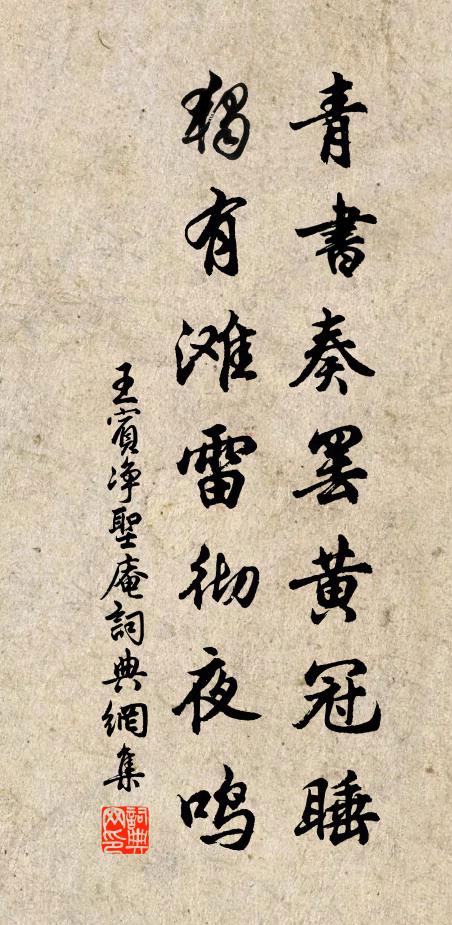 青書奏罢黄冠睡
独有滩雷彻夜鸣
王賓净聖庵詞典網集
詞典網印